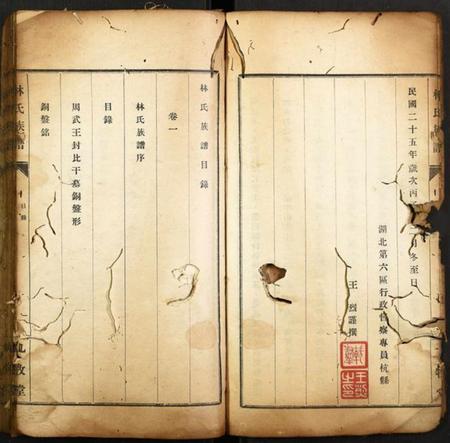 民國二十五年歲次丙子 月冬至日
湖北第六區行政督察專員杭縣
王烈謹撰
林氏族譜目錄
卷一
林氏族譜序
目錄
周武王封比干墓銅盤形
銅盤銘
林氏族譜
目錄